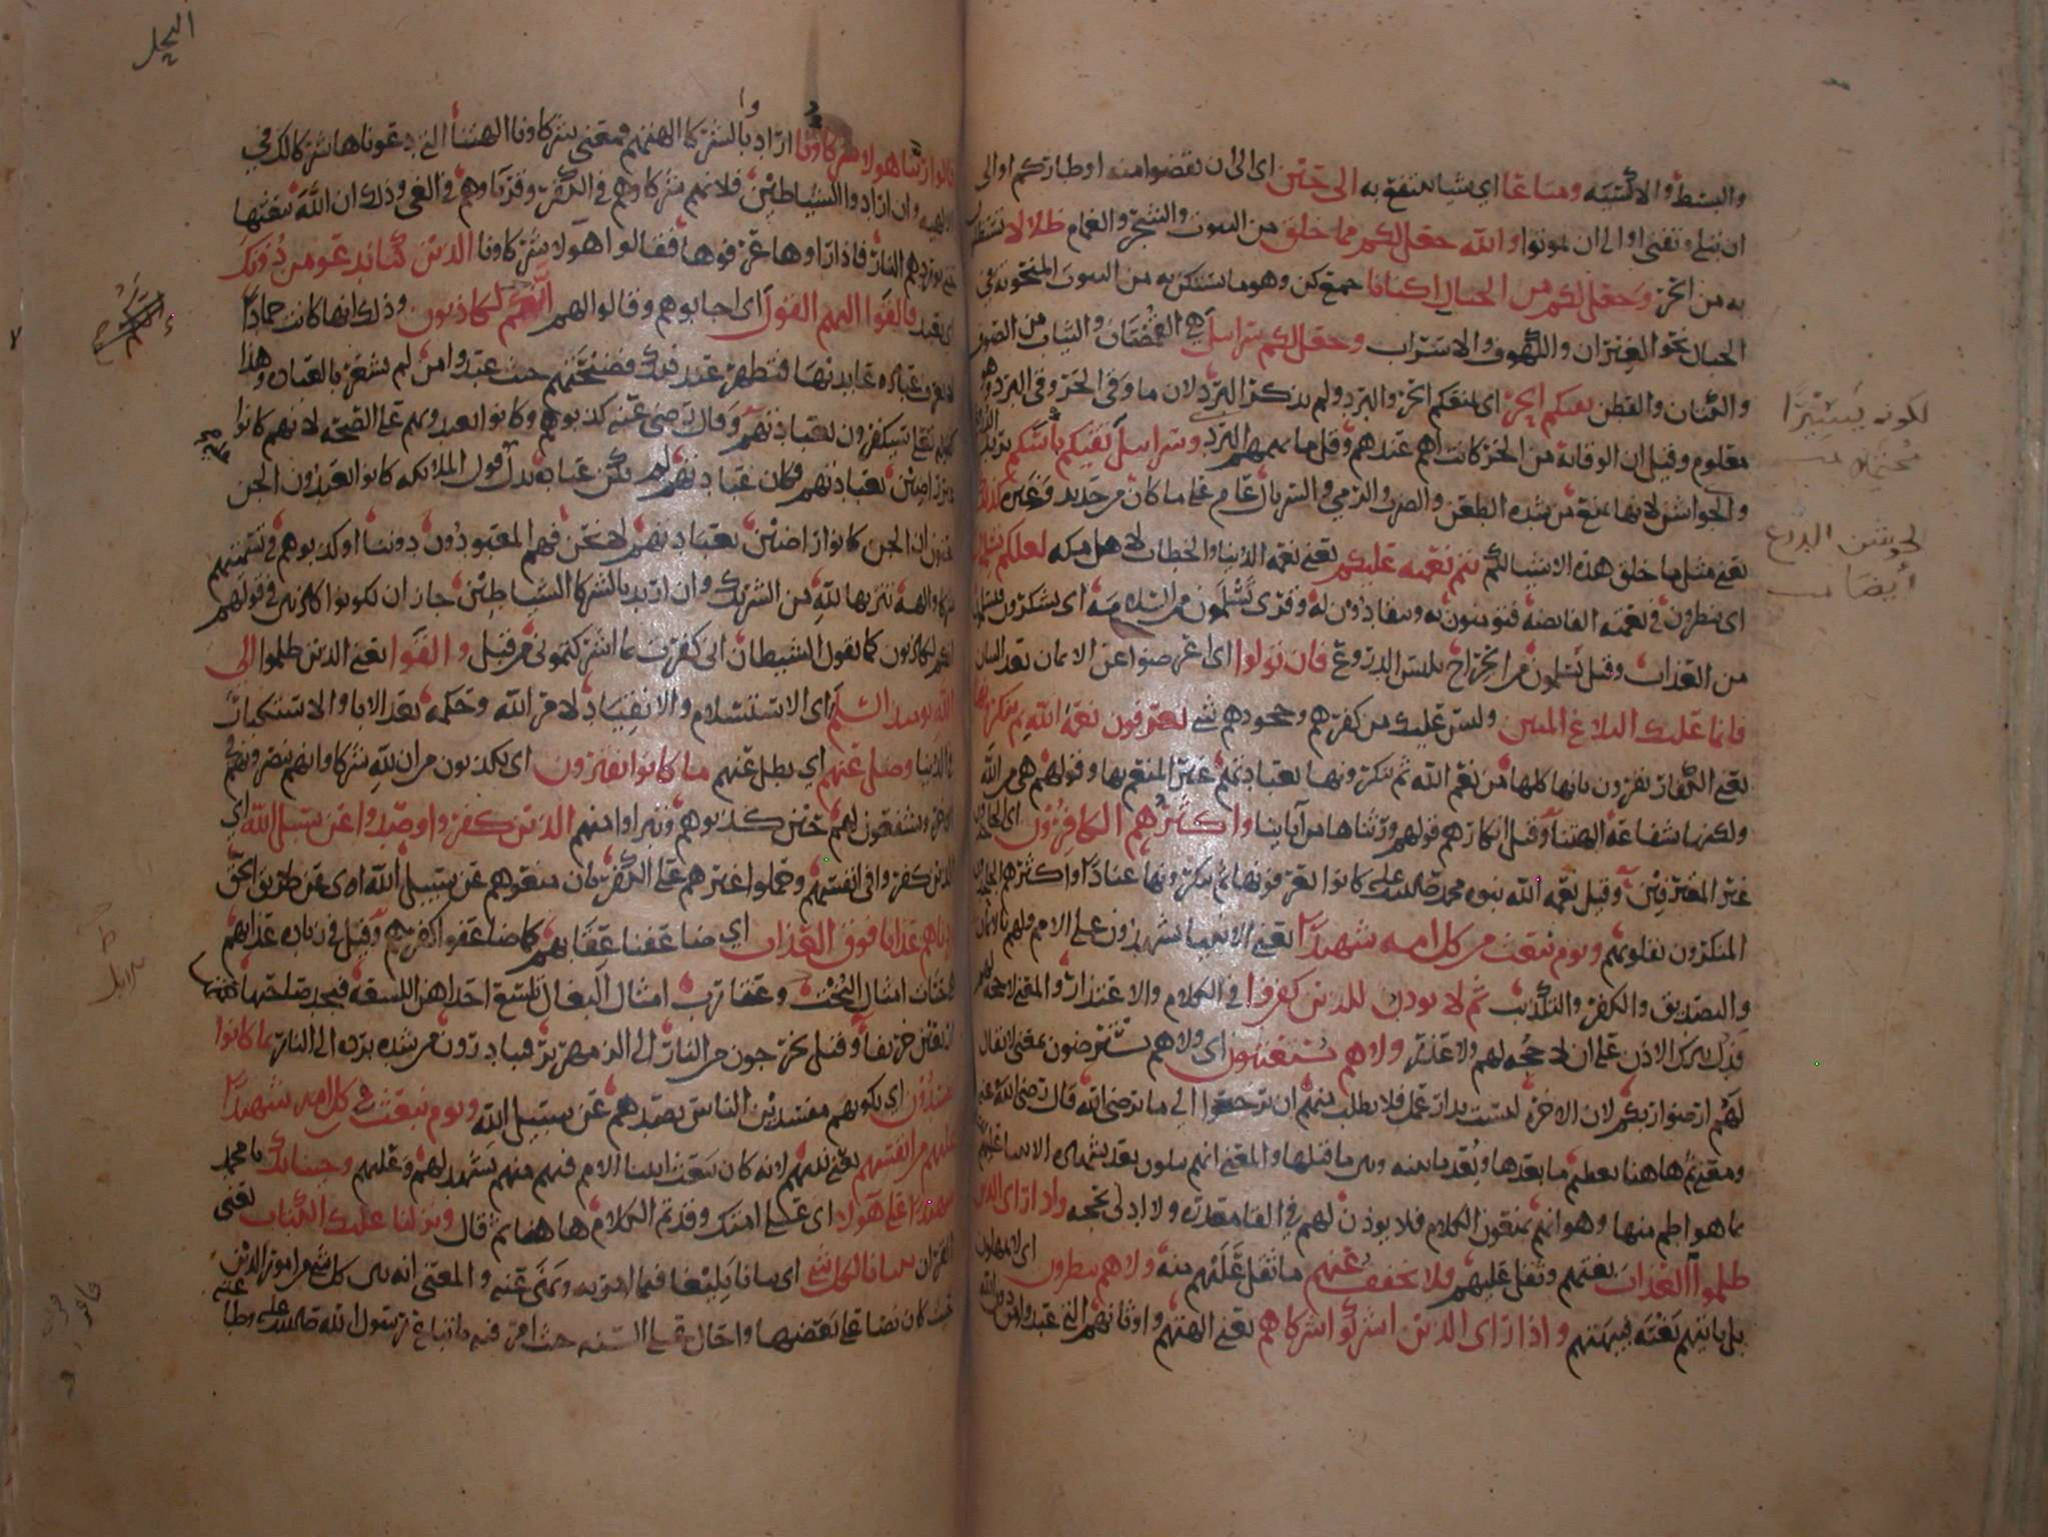 والبسط والاكسيه ومتاعا اي شيا ينتفع به الى حين اى الى ان تقضوا منه اوطاركم او الى
ان يبلى ويفنى او الى ان تموتوا والله جعل لكم مما خلق من البيوت والشجر والغمام ظلالا تستظلـ
به من الحر وجعل لكم من الجبال اكنانا جمع كن وهو ما يستكن به من البيوت المنحوته في
الجبال نحو الغيران والكهوف والاسراب وجعل لكم سرابيل هي القمصان والثياب من الصوف
والكتان والقطن تقيكم الحر اى تمنعكم الحر والبرد ولم يذكر البرد لان ما وقى الحر وقى البرد وهو
معلوم وقيل ان الوقاية من الحر كانت اهم عندهم وقل ما يهمهم البرد وسرابيل تقيكم باسكم يريد الدروع
والجواشن لانها تمنع من شده الطعن والضرب والرمي والسربال عام على ما كان من حديد وغيره كذلك
يعني مثل ما خلق هذه الاشيا لكم يتم نعمته عليكم يعني نعمه الدنيا والخطاب لاهل مكه لعلكم تسلمون
اى تنظرون في نعمه الفايضه فتؤمنون به وتنقادون له وقرى تسلمون من السلامه اى تشكرون فتسلمون
من العذاب وقيل تسلمون من الجراح بلبس الدروع فان تولوا اى اعرضوا عن الايمان بعد البيان
فانما عليك البلاغ المبين وليس عليك من كفرهم وجحودهم شي يعرفون نعمة الله ثم ينكرونها
يعني الكفار يقرون بانها كلها من نعم الله ثم ينكرونها بعبادتهم غير المنعم بها وقولهم هي من الله
ولكنها شفاعة الهتنا وقيل انكارهم قولهم ورثناها من آباينا واكثرهم الكافرون اى الجاحدون
غير المعترفين وقيل نعمه الله نبوه محمد صلى الله عليه كانوا يعرفونها ثم ينكرونها عنادا واكثرهم الجاحدون
المنكرون بقلوبهم ويوم نبعث من كل امه شهيدا يعني الانبيا يشهدون على الامم ولهم بالايمان
والتصديق والكفر والتكذيب ثم لا يؤذن للذين كفروا في الكلام والاعتذار والمعنى لا حجه لهم
فدل بترك الاذن على ان لا حجه لهم ولا عذر ولا هم يستعتبون اى ولا هم يسترضون بمعنى لا يقال
لهم ارضوا ربكم لان الاخرة ليست بدار عمل فلا يطلب منهم ان يرجعوا الى ما يرضى الله قال رضى الله عنه
ومعنى ثم هاهنا تعظيم ما بعدها وبعد ما بينه وبين ما قبلها والمعنى انهم يبلون بعد شهادة الانبيا عليهم
بما هو اطم منها وهو انهم يمنعون الكلام فلا يوذن لهم في القا معذره ولا ادلا بحجه واذا راى الذين
ظلموا العذاب بغتهم وثقل عليهم فلا يخفف عنهم ما ثقل عليهم منه ولا هم ينظرون اى لا يمهلون
بل ياتيهم بغته فيبهتهم واذا راى الذين اشركوا شركاهم يعني الهتهم واوثانهم التي عبدوا من دون الله
لكونه يسيرا
محتملا
الجوشن الدرع
أيضا
النحل
قالوا ربنا هولا شركاونا اراد بالشركا الهتهم ومعنى شركاونا الهتنا التي دعوناها شركا لك في
الالهيه وان ارادوا الشياطين فلانهم شركاوهم في الكفر وقرناوهم في الغي وذلك ان الله يبعثها
حتى توردهم النار فاذا راوها عرفوها فقالوا هولا شركاونا الذين كنا ندعو من دونك
اى نعبد فالقوا اليهم القول اى اجابوهم وقالوا لهم انكم لكاذبون وذلك انها كانت جمادا
لا تعرف عباده عابديها فتظهر عند ذلك فضيحتهم حيث عبدوا من لم يشعر بالعباده وهذا
كقوله تعالى سيكفرون بعبادتهم وقال رضى عنه كذبوهم وكانوا يعبدونهم على الصحه لانهم كانوا غير
راضين بعبادتهم فكان عبادتهم لم تكن عباده يدل قول الملائكه كانوا يعبدون الجن
يعنون ان الجن كانوا راضين بعبادتهم لا نحن فهم المعبودون دوننا او كذبوهم في تسميتهم
شركا والهة تنزيها لله من الشريك وان اريد بالشركا الشياطين جاز ان يكونوا كاذبين في قولهم
انكم لكاذبون كما يقول الشيطان انى كفرت بما اشركتموني من قبل والقوا يعني الذين ظلموا الى
الله يومئذ السلم اى الاستسلام والانقياد لامر الله وحكمه بعد الابا والاستكبار
في الدنيا وضل عنهم اي بطل عنهم ما كانوا يفترون اى يكذبون من ان لله شركا وانهم ينصرونهم
في الاخرة ويشفعون لهم حين كذبوهم وتبراوا منهم الذين كفروا وصدوا عن سبيل الله اي
الذين كفروا في انفسهم وحملوا غيرهم على الكفر بان منعوهم عن سبيل الله اى عن طريق الحق
زدناهم عذابا فوق العذاب اي ضاعفنا عقابهم كما ضاعفوا كفرهم وقيل في زياده عذابهم
حيات امثال البخت وعقارب امثال البغال تلسع احداهن اللسعه فيجد صاحبها حمتها
اربعين خريفا وقيل يخرجون من النار الى الزمهرير فيبادرون من شده برده الى النار بما كانوا
يفسدون اي بكونهم مفسدين الناس بصدهم عن سبيل الله ويوم نبعث في كل امه شهيدا
عليهم من انفسهم يعني نبيهم لانه كان يبعث انبيا الامم فيهم منهم يشهد لهم وعليهم وجينا بك يا محمد
شهيدا على هولا اى على امتك وقد تم الكلام هاهنا ثم قال ونزلنا عليك الكتاب يعني
القران تبيانا لكل شي اى بيانا بليغا فيما امر به ونهى عنه والمعنى انه بين كل شي من امور الدين
حيث كان نصا على بعضها واحال على السنه حيث امر فيه باتباع رسول الله صلى الله عليه وطاعته